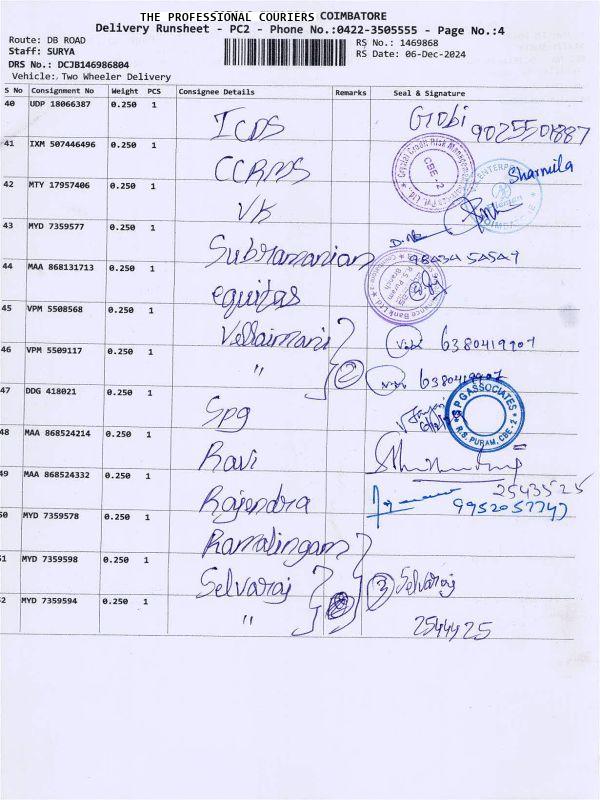 THE PROFESSIONAL COURIERS COIMBATORE
Delivery Runsheet - PC2 - Phone No.:0422-3505555 - Page No.:4
Route: DB ROAD
RS No.: 1469868
Staff: SURYA
RS Date: 06-Dec-2024
DRS No.: DCJB146986804
Vehicle: Two Wheeler Delivery
S No Consignment No Weight PCS Consignee Details Remarks Seal & Signature
40 UDP 18066387 0.250 1 ICDS Gobi 9025501887
41 IXM 507446496 0.250 1 CCRMS
42 MTY 17957406 0.250 1 VK Sharmila
43 MYD 7359577 0.250 1 Subramanian
44 MAA 868131713 0.250 1 equitas
45 VPM 5508568 0.250 1 Vellaimani 6380419907
46 VPM 5509117 0.250 1 " 2 6380419907
47 DDG 418021 0.250 1 Spg S P G ASSOCIATES R.S. PURAM, CBE-2
48 MAA 868524214 0.250 1 Ravi
49 MAA 868524332 0.250 1 Rajendra 2543525
9952057747
50 MYD 7359578 0.250 1 Ramalingam
51 MYD 7359598 0.250 1 Selvaraj 3 Selvaraj
52 MYD 7359594 0.250 1 " 2544425